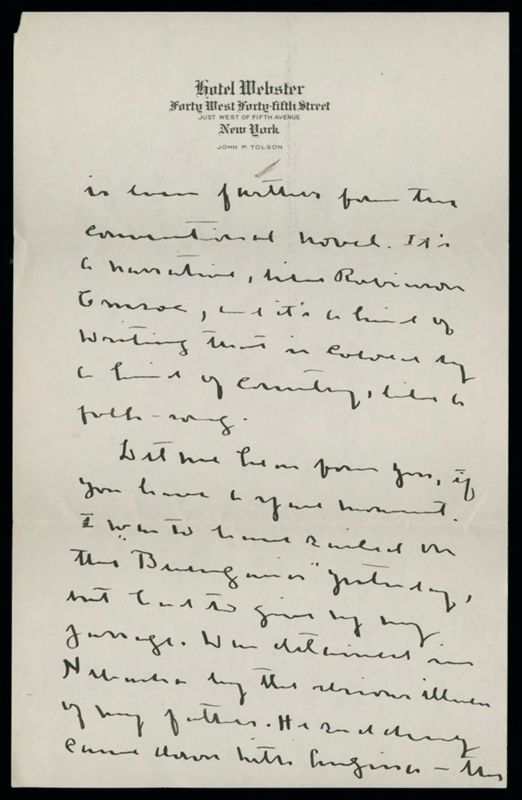 Hotel Webster
Forty West Forty-fifth Street
JUST WEST OF FIFTH AVENUE
New York
JOHN P. TOLSON
is even further from the
conventional novel. It's
a narrative, like Robinson
Crusoe, and it's a kind of
writing that is colored by
a kind of country, like a
folk-song.
Let me hear from you, if
you have a spare moment.
I was to have sailed on
the "Berengaria" yesterday,
but had to give up my
passage. Was detained in
Nebraska by the serious illness
of my father. He suddenly
came down with Angina - the